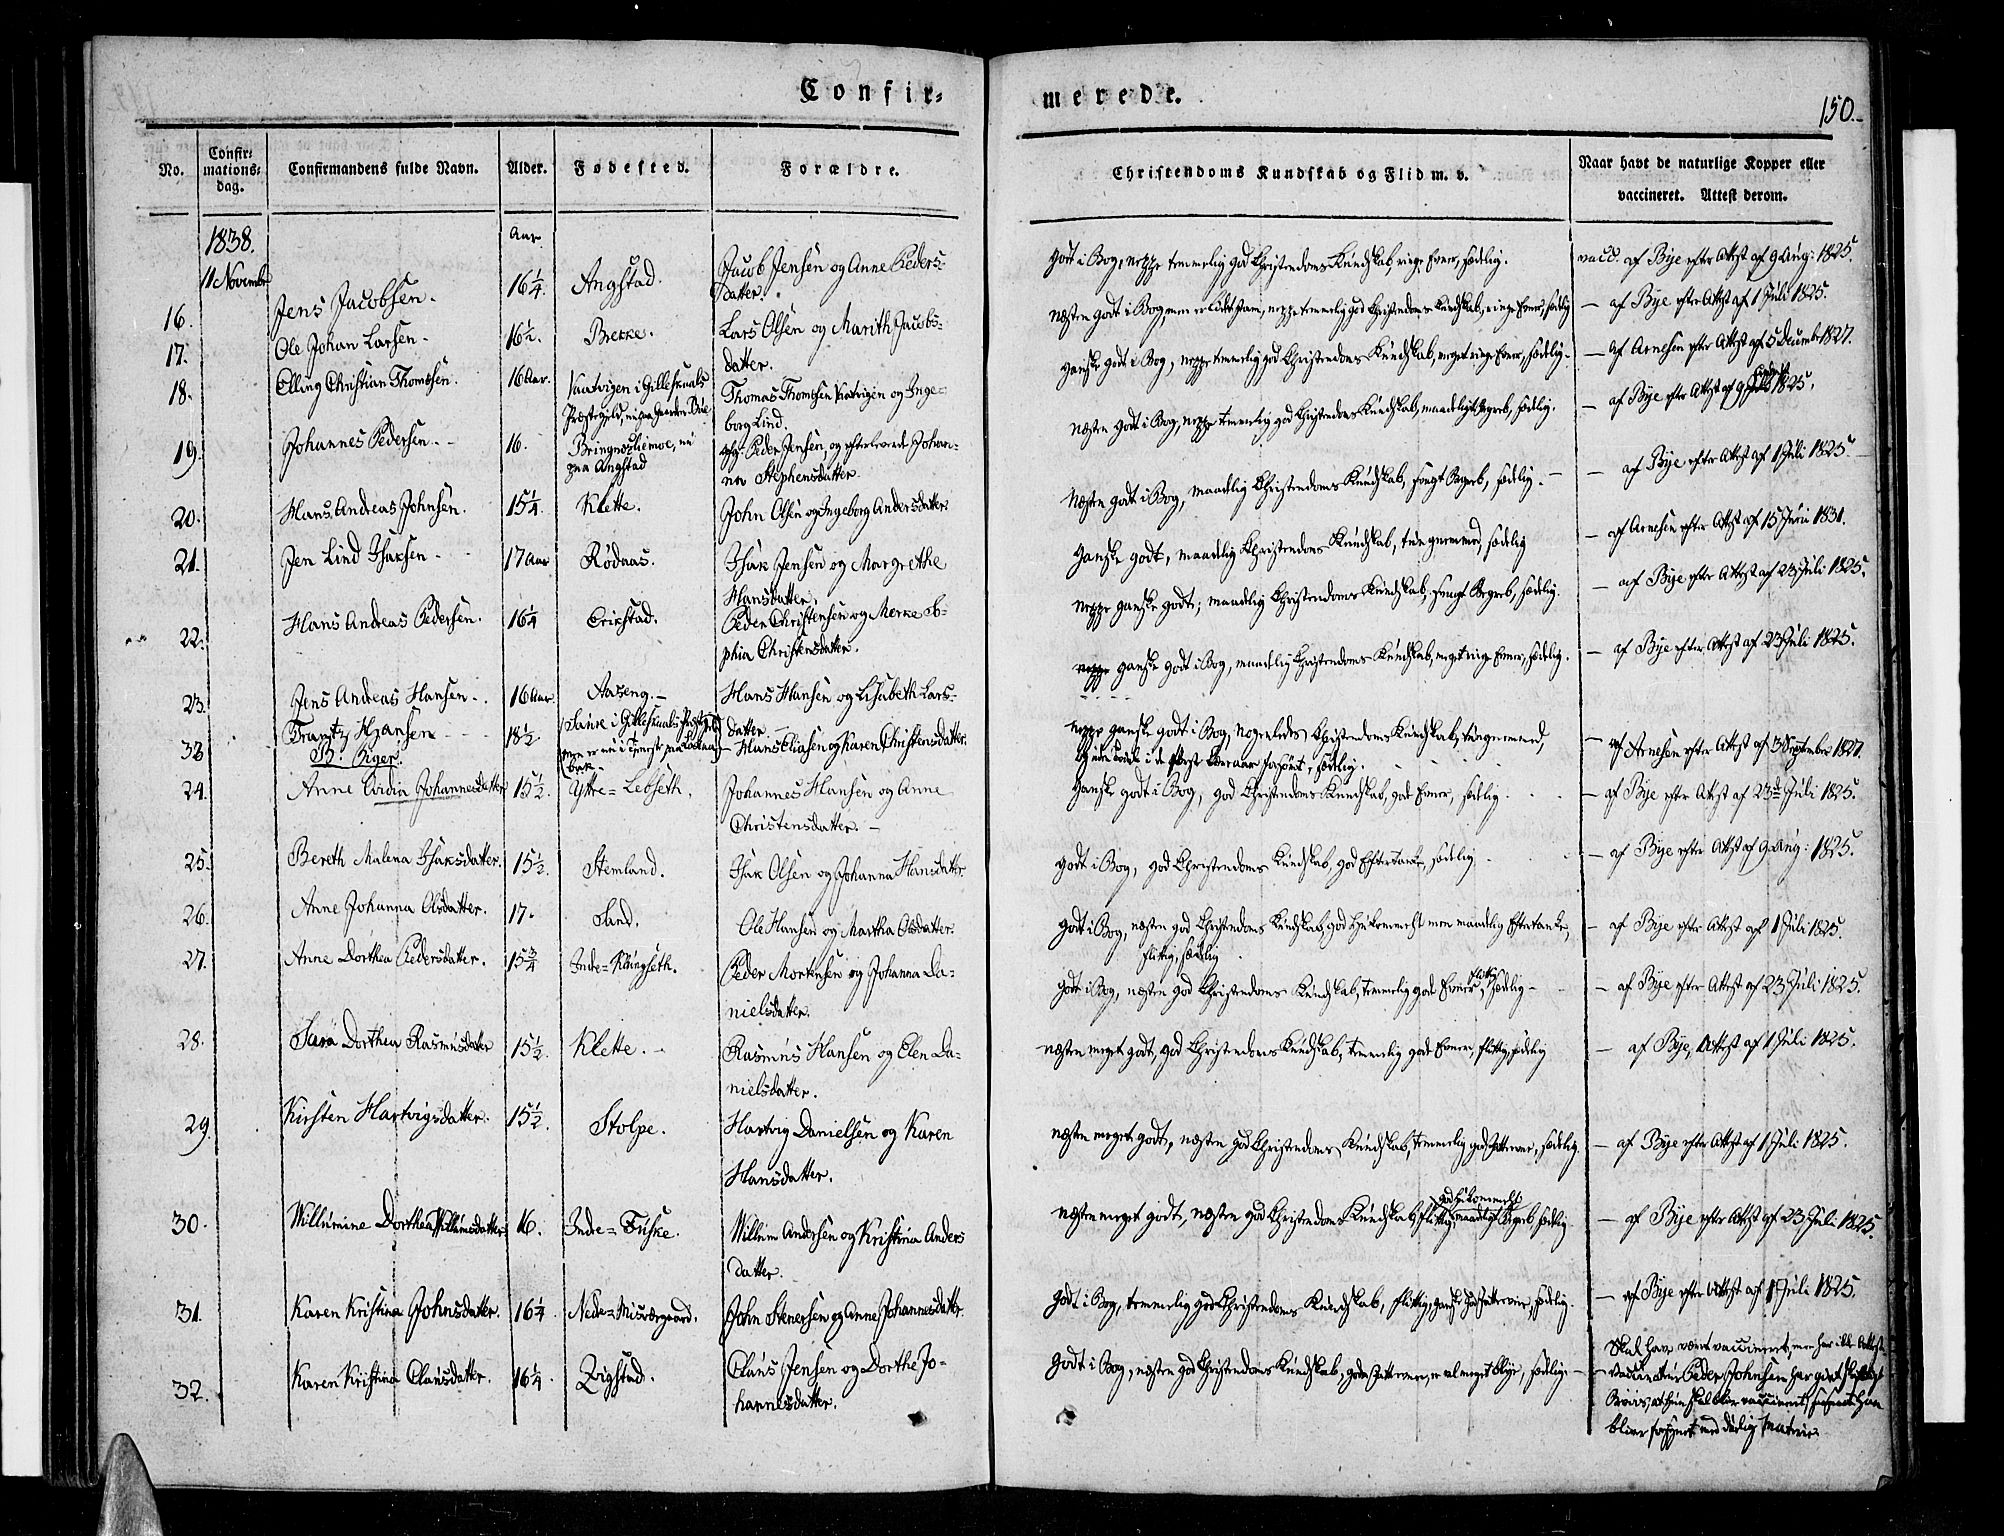 Confir=
merede.
150.
No.
Confir=
mations=
dag.
Confirmandens fulde Navn.
Alder.
Fødested.
Forældre.
Christendoms Kundskab og Flid m. v.
Naar havt de naturlige Kopper eller
vaccineret. Attest derom.
1838.
11 Novembr
Aar
16. Jens Jacobsen. 16 1/4. Angstad. Jacob Jensen og Anne Peders-
datter.
godt i Bog, neppe temmelig god Christendoms Kundskab, ringe Evner, sædelig. vacc. af Bye efter Attest af 9 Aug: 1825.
17. Ole Johan Larsen. 16 1/2. Bekke. Lars Olsen og Marith Jacobs-
datter.
næsten godt i Bog, men er lidt stam, neppe temmelig god Christendoms Kundskab, ringe Evner, sædelig — af Bye efter Attest af 1 Juli 1825.
18. Elling Christian Thomesen. 16 Aar. i Gilleskaals
Præstegjeld,
Thomas Thomesen og Inge-
borg Lind.
ganske godt i Bog, neppe temmelig god Christendoms Kundskab, meget ringe Evner, sædelig. — af Arnesen efter Attest af 5 December 1827.
19. Johannes Pedersen. 16. nu
paa Angstad
Peder Jensen, og efterlevende Johan-
na Stephensdatter.
næsten godt i Bog, neppe temmelig god Christendoms Kundskab, maadeligt Begreb, sædelig. — af Bye efter Attest af 9 1825.
20. Hans Andreas Johnsen. 15 1/4. Klette. John Olsen og Ingeborg Andersdatter.
næsten godt i Bog, maadelig Christendoms Kundskab, svagt Begreb, sædelig. — af Bye efter Attest af 1 Juli 1825.
21. Jen Lind Isaksen 17 Aar Rødaas. Isak Jensen og Margrethe
Hansdatter.
ganske godt, maadelig Christendoms Kundskab, tungnemmed, sædelig — af Arnesen efter Attest af 15 Juni 1831.
22. Hans Andreas Pedersen. 16 1/4 Erikstad. Peder Christensen og Merke So-
phia Christensdatter.
neppe ganske godt, maadelig Christendoms Kundskab, svagt Begreb, sædelig. — af Bye efter Attest af 23 Juli 1825.
23. Jens Andreas Hansen. 16 Aar. Aaseng. Hans Hansen og Lisabeth Lars-
datter.
neppe ganske godt i Bog, maadelig Christendoms Kundskab, meget ringe Evner, sædelig. — af Bye efter Attest af 23 Juli 1825.
33 Frantz Hansen 18 1/2. i Gilleskaals
men er nu i Tjeneste paa
Hans Eliasen og Karen Christensdatter.
neppe ganske godt i Bog, nogenledes Christendoms Kundskab, tungnemmed,
sædelig. — af Arnesen efter Attest af 3 September 1827.
B. Piger.
24. Anne Johannesdatter 15 1/2. Yttre=Lebseth. Johannes Hansen og Anne
Christensdatter.
Ganske godt i Bog, god Christendoms Kundskab, gode Evner, sædelig. — af Bye efter Attest af 23de Juli 1825.
25. Bereth Malena Isaksdatter. 15 1/2. Stemland. Isak Olsen og Johanna Hansdatter.
godt i Bog, god Christendoms Kundskab, god Eftertanke, sædelig. — af Bye efter Attest af 9 Aug: 1825.
26. Anne Johanna Olsdatter. 17. Sand. Ole Hansen og Martha Olsdatter.
godt i Bog, næsten god Christendoms Kundskab, god Hukommelse men maadelig Eftertanke,
flittig, sædelig — af Bye efter Attest af 1 Juli 1825.
27. Anne Dorthea Pedersdatter. 15 3/4 Indre=Klungseth. Peder Mortensen og Johanna Da-
nielsdatter.
godt i Bog, næsten god Christendoms Kundskab, temmelig gode Evner, flittig, sædelig — af Bye efter Attest af 23 Juli 1825.
28. Sara Dorthea Rasmusdatter 15 1/2. Klette. Rasmus Hansen og Elen Da-
nielsdatter.
næsten meget godt, god Christendoms Kundskab, temmelig gode Evner, flittig, sædelig — af Bye, Attest af 1 Juli 1825.
29. Kirsten Hartvigsdatter. 15 1/2. Stolpe. Hartvig Danielsen og Karen
Hansdatter.
næsten meget godt, næsten god Christendoms Kundskab, temmelig god Fatteevne, sædelig. — af Bye efter Attest af 1 Juli 1825.
30. Willumine Dorthea Willumsdatter 16. Indre=Fuske. Willum Andersen og Kristina Anders
datter.
næsten meget godt, næsten god Christendoms Kundskab, flittig, god Hukommelse maadeligt Begreb, sædelig — af Bye efter Attest af 23 Juli 1825.
31. Karen Kristina Johnsdatter. 16 1/4. Nedre=Misværgaard. John Stenersen og Anne Johannesdatter.
godt i Bog, temmelig god Christendoms Kundskab, flittig, ganske god Fatteevne, sædelig. — af Bye efter Attest af 1 Juli 1825.
32. Karen Kristina Clausdatter. 16 1/4. Zigstad. Claus Jensen og Dorthe Jo-
hannesdatter.
godt i Bog, næsten god Christendoms Kundskab, gode Fatteevner, er vel meget blye, sædelig. —
Skal have været vaccineret, men har ikke Attest.
Vaccinatør Peder Johnsen har givet skriftligt
Beviis, at hun skal blive vaccineret, saasnart han
bliver forsynet med dørlig Materie.